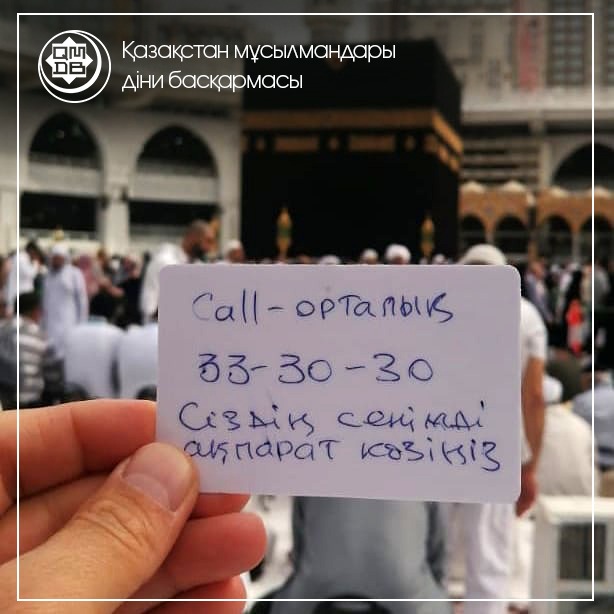 Қазақстан мұсылмандары
діни басқармасы
ҚМДБ
Call-орталық
33-30-30
Сіздің сенімді
ақпарат көзіңіз